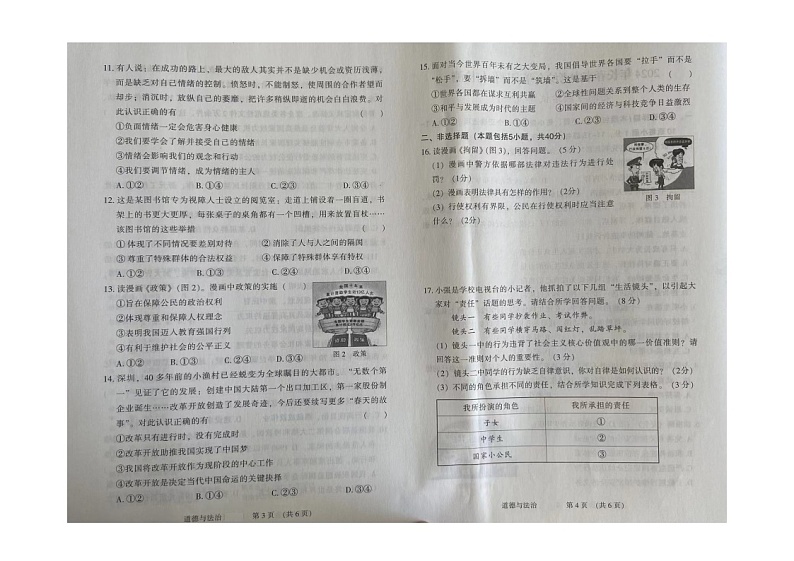 11. 有人说：在成功的路上，最大的敌人其实并不是缺少机会或资历浅薄，
而是缺乏对自己情绪的控制。愤怒时，不能制怒，使周围的合作者望而
却步；消沉时，放纵自己的萎靡，把许多稍纵即逝的机会白白浪费。对
此认识正确的有（ ）
①负面情绪一定会危害身心健康
②我们要学会了解并接受自己的情绪
③情绪会影响我们的观念和行动
④我们要调节情绪，成为情绪的主人
A. ①②③ B. ①②④ C. ①③④ D. ②③④
12. 这是某图书馆专为视障人士设立的阅览室：走道上铺设着一圈盲道，书
架上的书更大更厚，每张桌子的桌角都有一个凹槽，用来放置盲杖……
该图书馆的这些举措（ ）
①体现了不同情况要差别对待 ②消除了人与人之间的隔阂
③尊重了特殊群体的合法权益 ④保障了特殊群体享有特权
A. ①② B. ①③ C. ②④ D. ③④
13. 读漫画《政策》（图 2）。漫画中政策的实施（ ）
①旨在保障公民的政治权利
②体现尊重和保障人权理念
③表明我国迈入教育强国行列
④有利于维护社会的公平正义
A. ①② B. ①③ C. ②④ D. ③④
图 2 政策
14. 深圳，40 多年前的小渔村已经蜕变为全球瞩目的大都市。“无数个第
一”见证了它的发展：创建中国大陆第一个出口加工区，第一家股份制
企业诞生……改革开放创造了发展奇迹，今后还要续写更多“春天的故
事”。对此认识正确的有（ ）
①改革只有进行时，没有完成时
②改革开放助推我国实现了中国梦
③我国将改革开放作为现阶段的中心工作
④改革开放是决定当代中国命运的关键抉择
A. ①② B. ①④ C. ②③ D. ③④
道德与法治 第 3 页 （共 6 页）
15. 面对当今世界百年未有之大变局，我国倡导世界各国要“拉手”而不是
“松手”，要“拆墙”而不是“筑墙”。这是基于（ ）
①世界各国都在谋求互利共赢 ②全球性问题关系到整个人类的生存
③和平与发展成为时代的主题 ④国家间的经济与科技竞争日益激烈
A. ①② B. ①④ C. ②③ D. ③④
二、非选择题（本题包括5小题，共40分）
16. 读漫画《拘留》（图 3），回答问题。（5 分）
（1）漫画中警方依据哪部法律对违法行为进行处
罚？（1分）
（2）漫画表明法律具有怎样的作用？（2分）
（3）行使权利有界限，公民在行使权利时应当注意
什么？（2分）
图 3 拘留
17. 小强是学校电视台的小记者，他抓拍了以下几组“生活镜头”，以引起大
家对“责任”话题的思考。请结合所学回答问题。（8 分）
镜头一 有些同学抄袭作业、考试作弊。
镜头二 有些同学横穿马路、闯红灯，乱踏草坪。
（1）镜头一中的行为违背了社会主义核心价值观中的哪一价值准则？请
回答这一准则对个人的意义。（3 分）
（2）镜头二中同学的行为缺乏自律意识，你对自律是如何认识的？（2分）
（3）不同的角色承担不同的责任，结合所学知识完成下列表格。（3 分）
我所扮演的角色 我所承担的责任
子女 ①
中学生 ②
国家小公民 ③
道德与法治 第 4 页 （共 6 页）